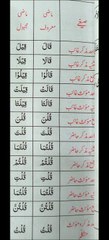 صیغے ماضی معروف ماضی مجہول
واحد مذکر غائب قَالَ قِيْلَ
تثنیہ مذکر غائب قَالَا قِيْلَا
جمع مذکر غائب قَالُوْا قِيْلُوْا
واحد مؤنث غائب قَالَتْ قِيْلَتْ
تثنیہ مؤنث غائب قَالَتَا قِيْلَتَا
جمع مؤنث غائب قُلْنَ قُلْنَ
واحد مذکر حاضر قُلْتَ قُلْتَ
تثنیہ مذکر حاضر قُلْتُمَا قُلْتُمَا
جمع مذکر حاضر قُلْتُمْ قُلْتُمْ
واحد مؤنث حاضر قُلْتِ قُلْتِ
تثنیہ مؤنث حاضر قُلْتُمَا قُلْتُمَا
جمع مؤنث حاضر قُلْتُنَّ قُلْتُنَّ